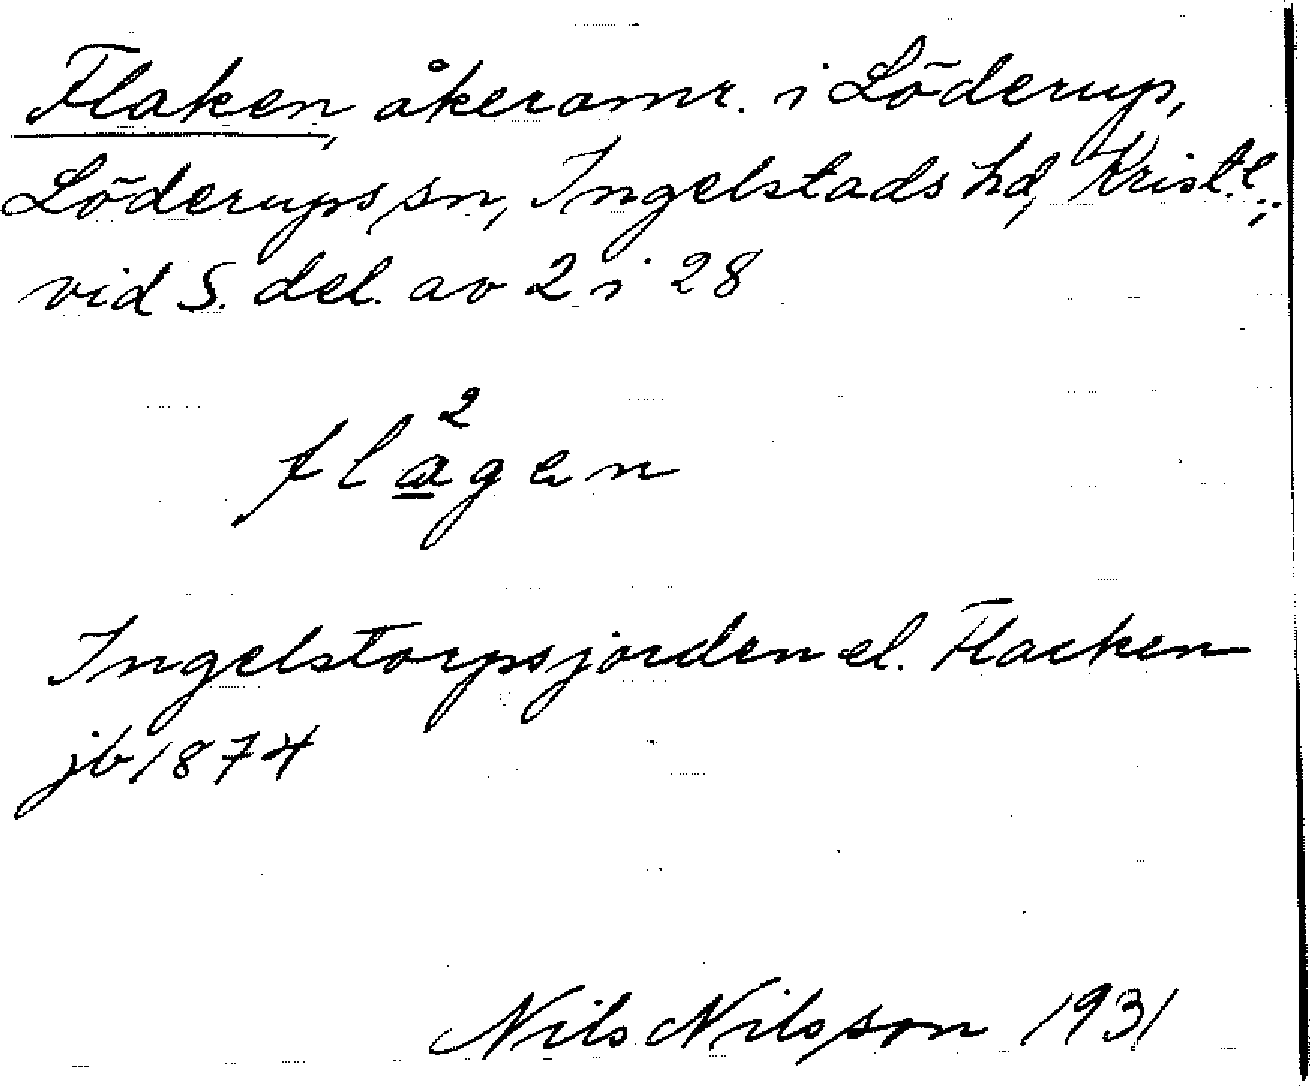 Flaken, åkeromr. i Löderup,
Löderups sn, Ingelstads hd, Krist. l.;
vid S. del. av 2 i 28
2
flagen
Ingelstorpsjorden el. Flacken
jb 1874
Nils Nilsson 1931